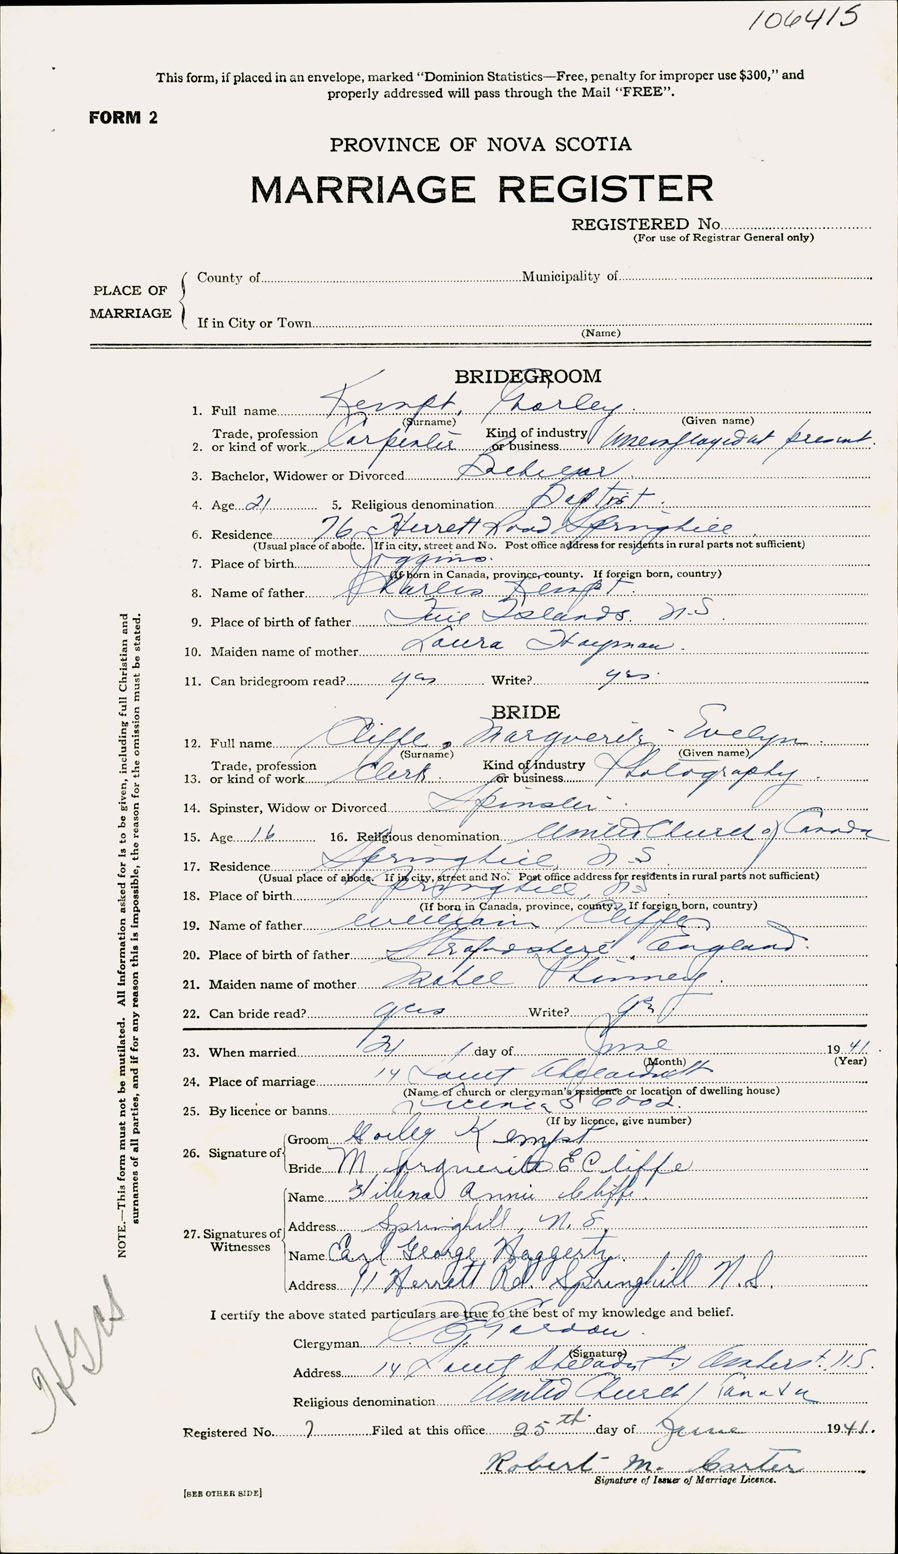 106415
This form, if placed in an envelope, marked "Dominion Statistics—Free, penalty for improper use $300," and
properly addressed will pass through the Mail "FREE".
FORM 2
PROVINCE OF NOVA SCOTIA
MARRIAGE REGISTER
REGISTERED No.
(For use of Registrar General only)
PLACE OF MARRIAGE
County of Municipality of
If in City or Town
(Name)
BRIDEGROOM
1. Full name Kempt, Gorley
(Surname) (Given name)
2. Trade, profession or kind of work Carpenter Kind of industry or business Unemployed at present.
3. Bachelor, Widower or Divorced Bachelor
4. Age 21 5. Religious denomination Baptist.
6. Residence 76 Herrett Road Springhill
(Usual place of abode. If in city, street and No. Post office address for residents in rural parts not sufficient)
7. Place of birth Joggins.
(If born in Canada, province, county. If foreign born, country)
8. Name of father Charles Kempt.
9. Place of birth of father Islands. N.S.
10. Maiden name of mother Laura Hayman.
11. Can bridegroom read? yes Write? yes.
BRIDE
12. Full name Cliffe, Marguerite - Evelyn
(Surname) (Given name)
13. Trade, profession or kind of work Clerk. Kind of industry or business Photography
14. Spinster, Widow or Divorced Spinster
15. Age 16 16. Religious denomination United Church of Canada
17. Residence Springhill, N.S.
(Usual place of abode. If in city, street and No. Post office address for residents in rural parts not sufficient)
18. Place of birth Springhill, N.S.
(If born in Canada, province, county. If foreign born, country)
19. Name of father William Cliffe
20. Place of birth of father England.
21. Maiden name of mother Mabel Phinney.
22. Can bride read? yes Write? yes
23. When married 21 day of June 1941
(Month) (Year)
24. Place of marriage 14
(Name of church or clergyman's residence or location of dwelling house)
25. By licence or banns Licence
(If by licence, give number)
26. Signature of
Groom Gorley Kempt
Bride Marguerite E Cliffe
27. Signatures of Witnesses
Name Annie Cliffe.
Address Springhill, N.S.
Name Earl George Haggerty.
Address 91 Herrett Rd. Springhill N.S.
I certify the above stated particulars are true to the best of my knowledge and belief.
Clergyman
(Signature)
Address 14 St., Amherst. N.S.
Religious denomination United Church of Canada
Registered No. 7 Filed at this office 25th day of June 1941.
Robert M. Carter
Signature of Issuer of Marriage Licence.
[SEE OTHER SIDE]
NOTE.—This form must not be mutilated. All information asked for is to be given, including full Christian and
surnames of all parties, and if for any reason this is impossible, the reason for the omission must be stated.